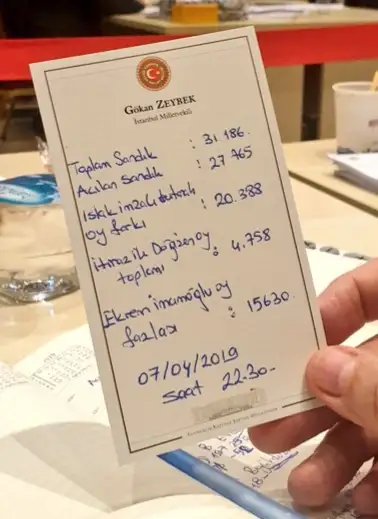 Gökan ZEYBEK
İstanbul Milletvekili
Toplam Sandık : 31.186.
Açılan Sandık : 27 465
Islak imzalı tutanak
oy farkı : 20.388
itiraz ile Değişen oy
toplamı : 4.758
Ekrem imamoğlu oy
fazlası : 15630.
07/04/2019
Saat 22.30-